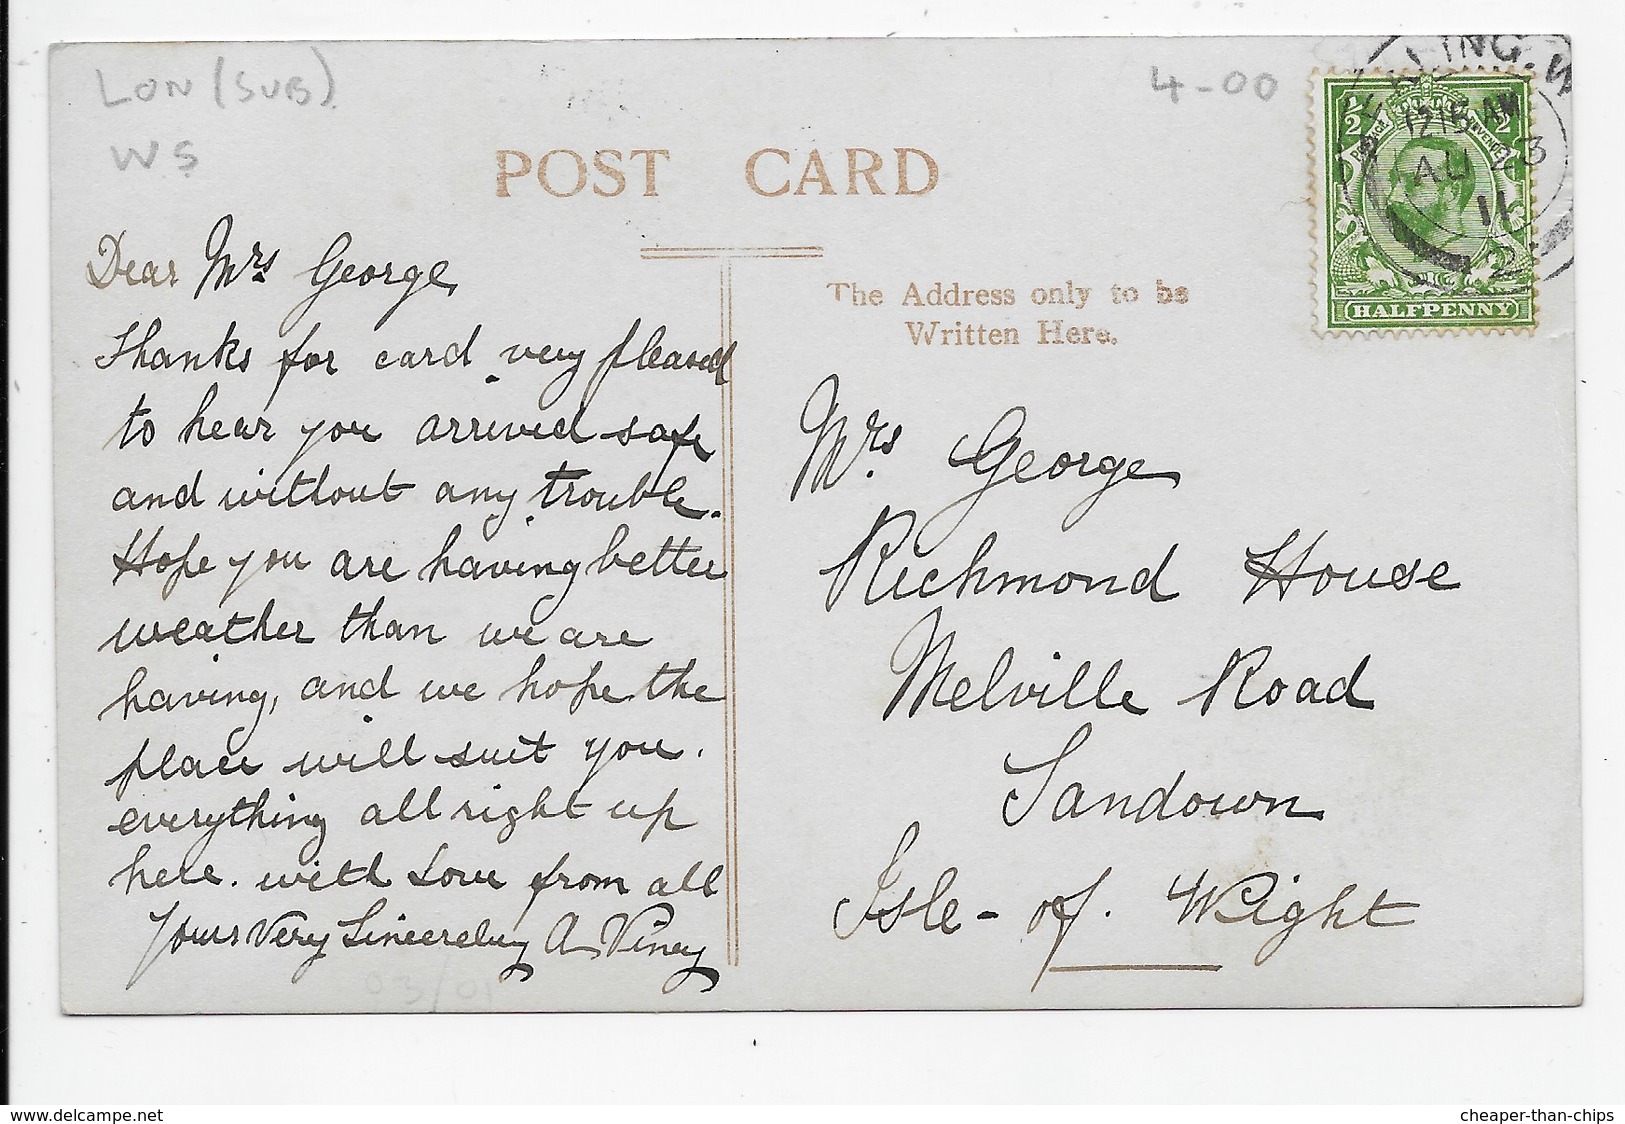 LON (SUB)
W5
4-00
POST CARD
Dear Mrs George
Thanks for card very pleased
to hear you arrived safe
and without any trouble.
Hope you are having better
weather than we are
having, and we hope the
place will suit you.
everything all right up
here. with Love from all
Yours Very Sincereley A Viney
03/01
The Address only to be
Written Here.
Mrs George
Richmond House
Melville Road
Sandown
Isle - of. Wight
EALING. W
1215 AM
AU 23
11
HALFPENNY
www.delcampe.net
cheaper-than-chips